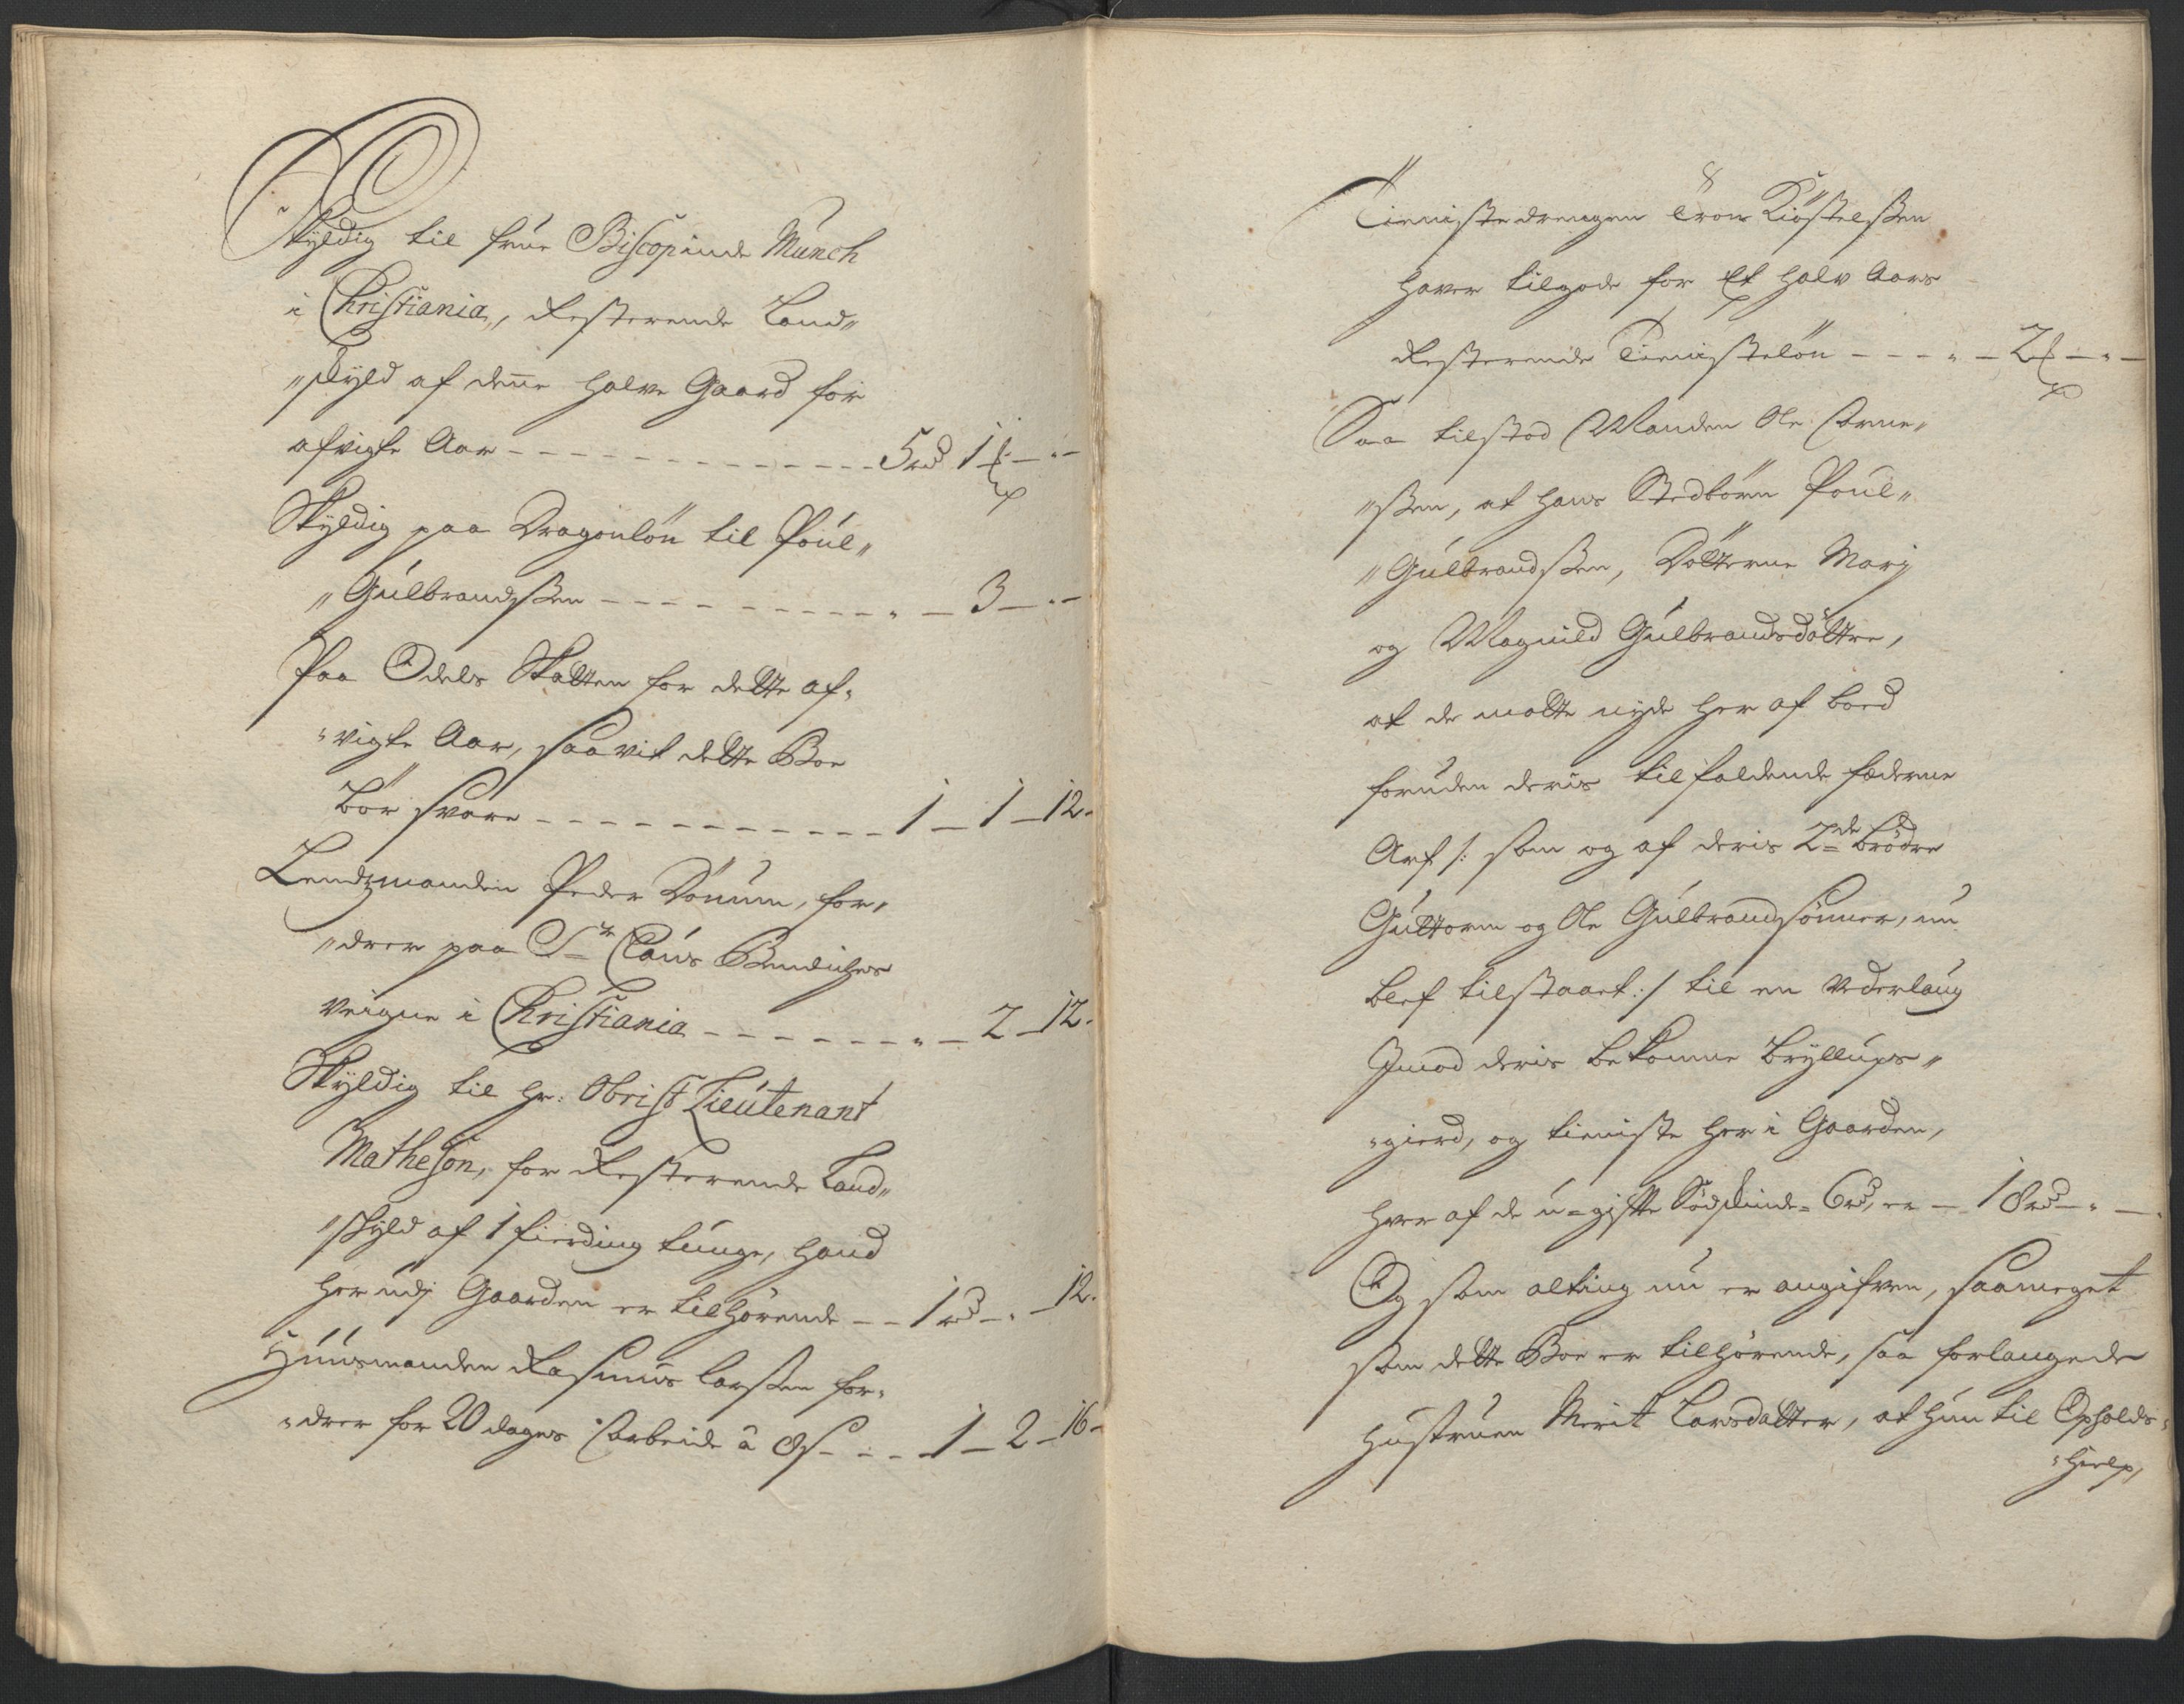 Skyldig til frue Biscopinde Munch
i Christiania, Resterende Land„
„skyld af denne halve Gaard for
afvigte Aar - - - - - - - - - - - - - - - 5 rd 1 ß - „ -
Skyldig paa Dragonlön til Poul„
„Gulbrandsßen - - - - - - - - - - - „ - 3 - „ -
Paa Odels Skatten for dette af„
„vigte Aar, saavit dette Boe
bör svare - - - - - - - - - - - 1 - 1 - 12.
Lendzmanden Peder Dönum, for„
„drer paa Sr Claus Bendichs
veigne i Christiania - - - - - - - „ - 2 - 12.
Skyldig til hr: Obrist Lieutenant
Matheson, for Resterende Land„
„skyld af 1 fierding tunge, hand
her udj Gaarden er tilhörende - - 1 rd - „ - 12.
Huusmanden Rasmus Larsßen for„
„drer for 20 dages Arbeide â 8 ß - - - 1 - 2 - 16 -
Tienistedrengen Tron Kiöstelsßen
haver tilgode for Et halv Aars
Resterende Tienistelön - - - „ - 2 ß - „ -
Saa tilstod Manden Ole Arne„
„sßen, at hans Stedbörn Poul„
„Gulbrandsßen, Dötterne Marj
og Magnild Gulbrandsdöttre,
at de motte nyde her af boed
foruden deris tilfaldende fæderne
Arf /: som og af deris 2de brödre
Guttorm og Ole Gulbrandsönner, nu
blef tilstaaet :/ til en Vederlaug
Jmod deris bekomne bryllups„
„gierd, og tieniste her i Gaarden,
hver af de u=gifte Södskinde= 6 rd, er - 18 rd - „ -
Og som alting nu er angifven, saameget
som dette Boe er tilhörende, saa forlangede
Hustruen Merit Larsdatter, at hun til Opholds„
„hielp,